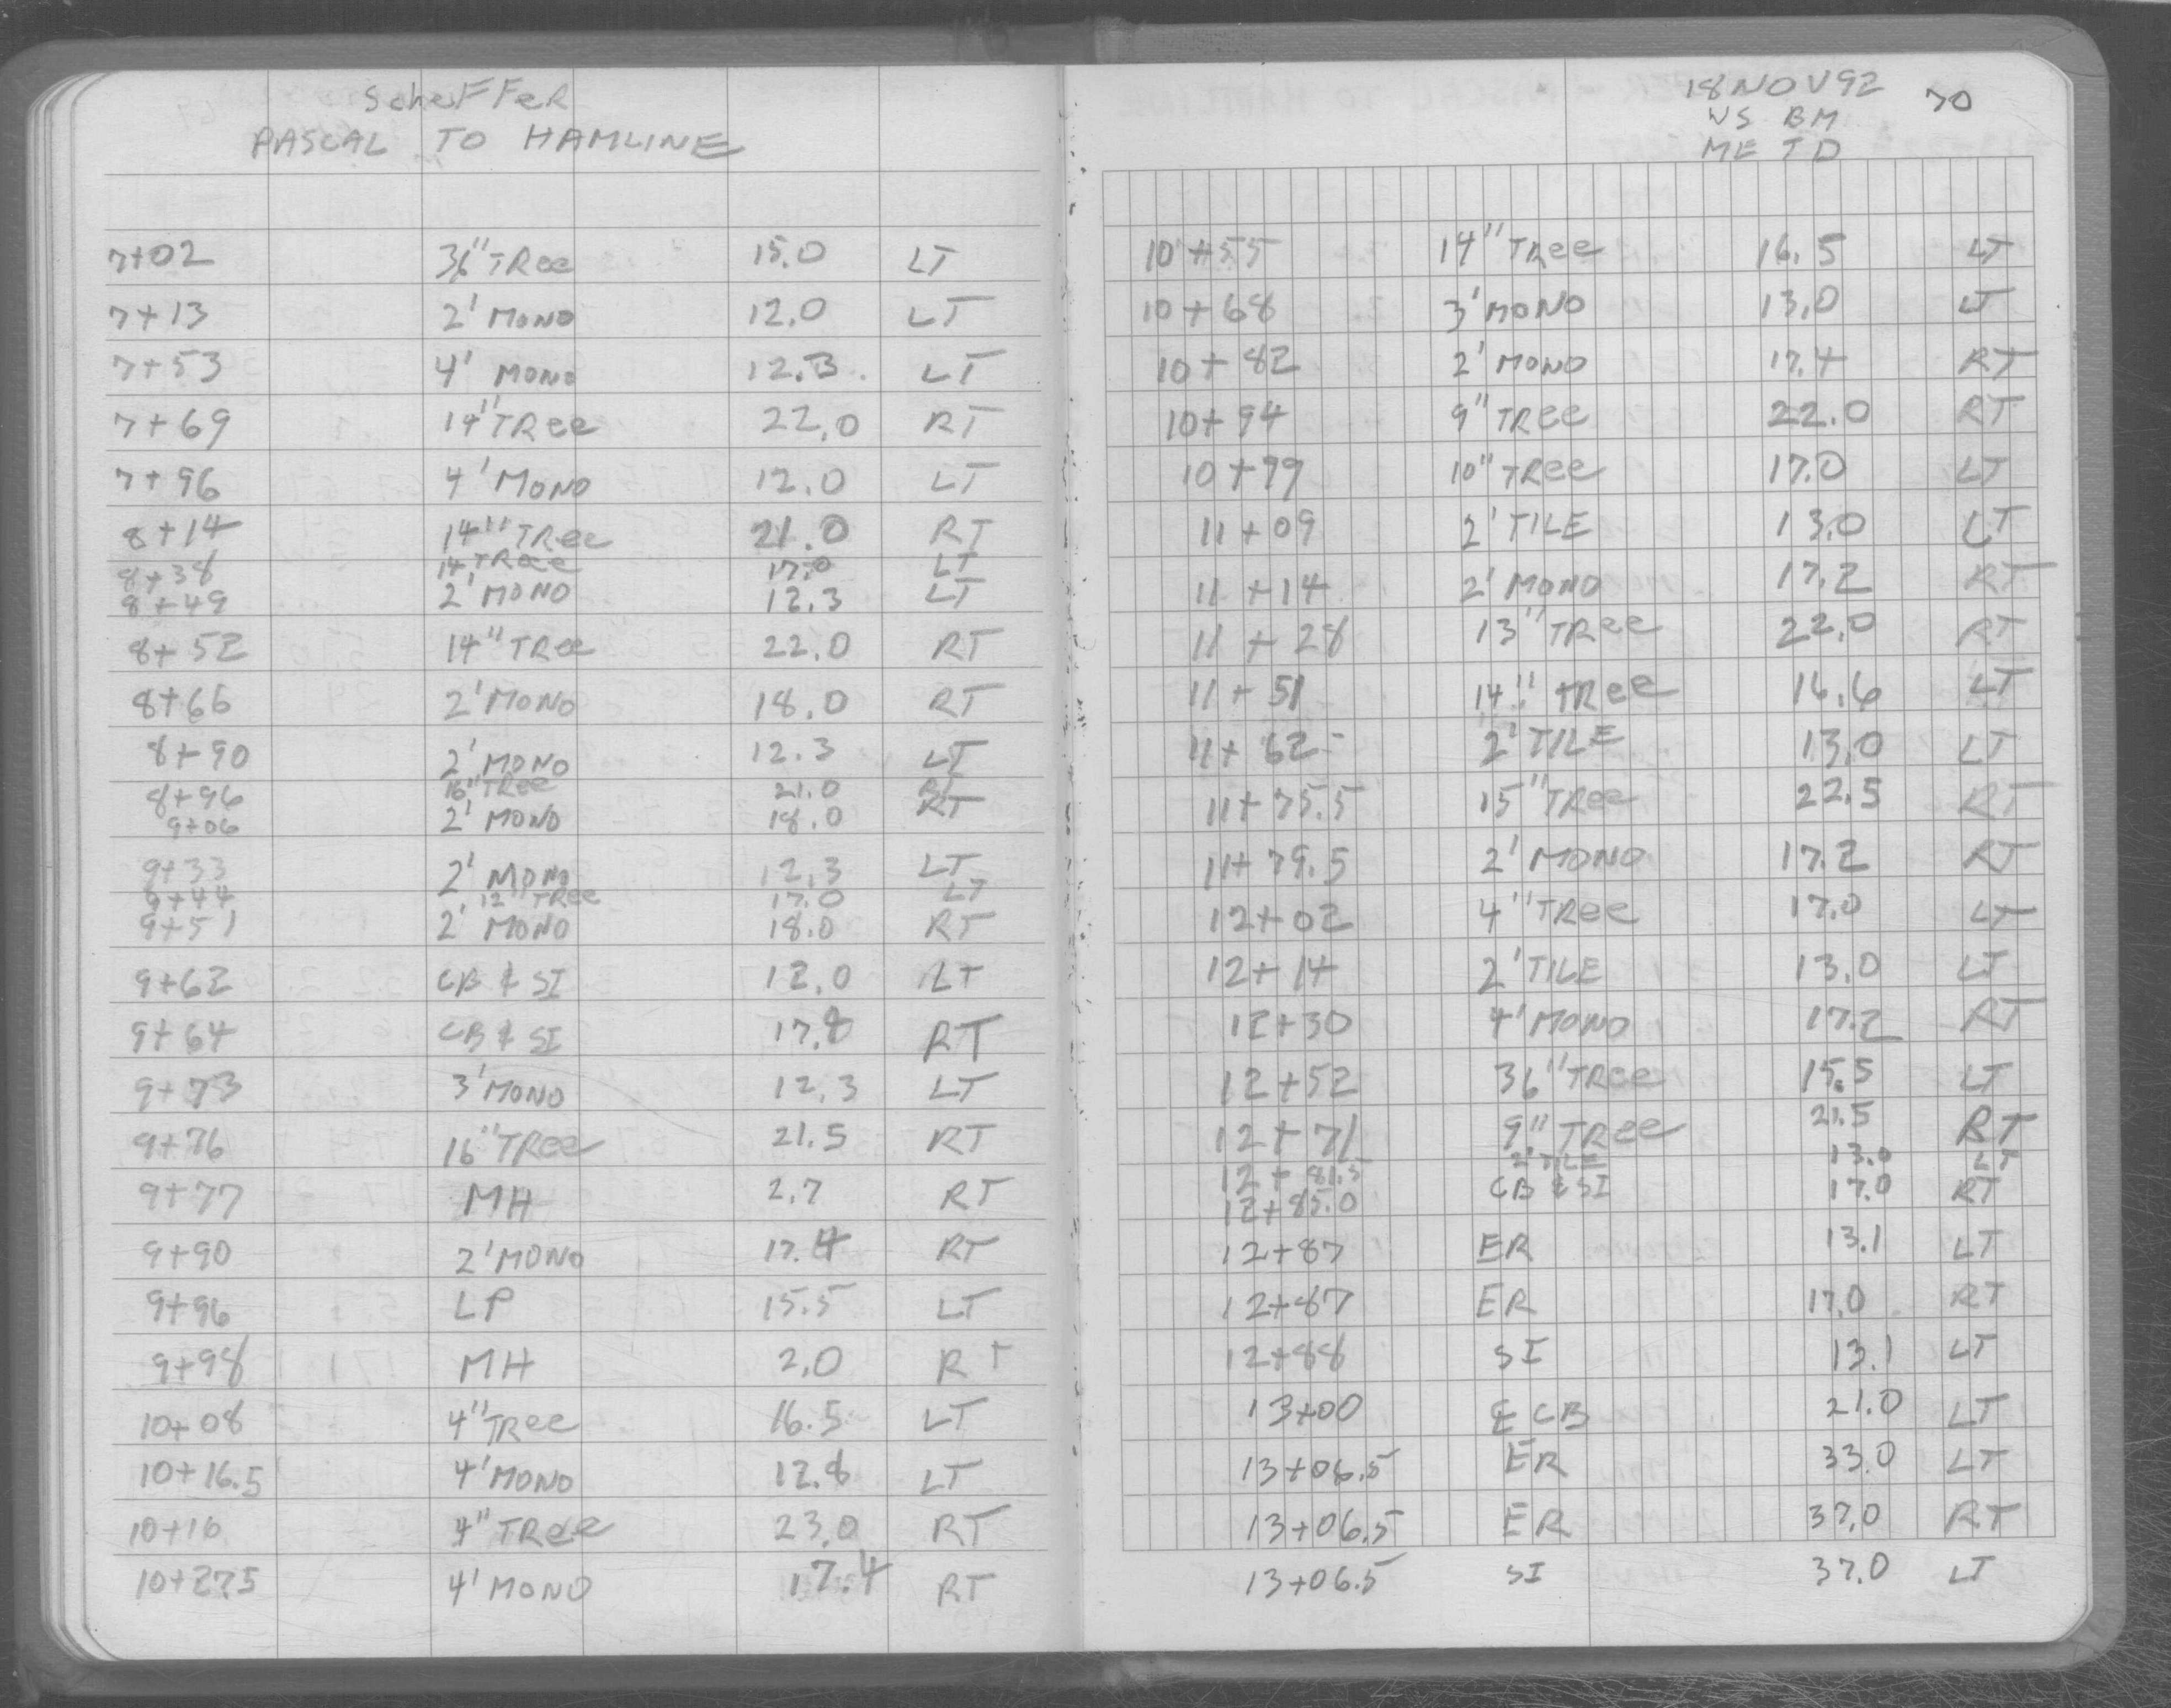 SCHEFFER
PASCAL TO HAMLINE
7+02 36" TREE 15.0 LT
7+13 2' MONO 12.0 LT
7+53 4' MONO 12.3 LT
7+69 14" TREE 22.0 RT
7+96 4' MONO 12.0 LT
8+14 14" TREE 21.0 RT
8+38 14" TREE 17.0 LT
8+49 2' MONO 12.3 LT
8+52 14" TREE 22.0 RT
8+66 2' MONO 18.0 RT
8+90 2' MONO 12.3 LT
8+96 16" TREE 21.0 RT
9+06 2' MONO 18.0 RT
9+33 2' MONO 12.3 LT
9+44 12" TREE 17.0 LT
9+51 2' MONO 18.0 RT
9+62 CB & SI 12.0 LT
9+64 CB & SI 17.8 RT
9+73 3' MONO 12.3 LT
9+76 16" TREE 21.5 RT
9+77 MH 2.7 RT
9+90 2' MONO 17.4 RT
9+96 LP 15.5 LT
9+98 MH 2.0 RT
10+08 4" TREE 16.5 LT
10+16.5 4' MONO 12.8 LT
10+16 4" TREE 23.0 RT
10+27.5 4' MONO 17.4 RT
18 NOV 92 70
WS BM
ME TD
10+55 14" TREE 16.5 LT
10+68 3' MONO 13.0 LT
10+82 2' MONO 17.4 RT
10+94 9" TREE 22.0 RT
10+99 10" TREE 17.0 LT
11+09 2' TILE 13.0 LT
11+14 2' MONO 17.2 RT
11+28 13" TREE 22.0 RT
11+51 14" TREE 16.6 LT
11+62 2' TILE 13.0 LT
11+75.5 15" TREE 22.5 RT
11+79.5 2' MONO 17.2 RT
12+02 4" TREE 17.0 LT
12+14 2' TILE 13.0 LT
12+30 4' MONO 17.2 RT
12+52 36" TREE 15.5 LT
12+71 9" TREE 21.5 RT
12+81.5 2' TILE 13.0 LT
12+85.0 CB & SI 17.0 RT
12+87 ER 13.1 LT
12+87 ER 17.0 RT
12+88 SI 13.1 LT
13+00 ℄ CB 21.0 LT
13+06.5 ER 33.0 LT
13+06.5 ER 37.0 RT
13+06.5 SI 37.0 LT